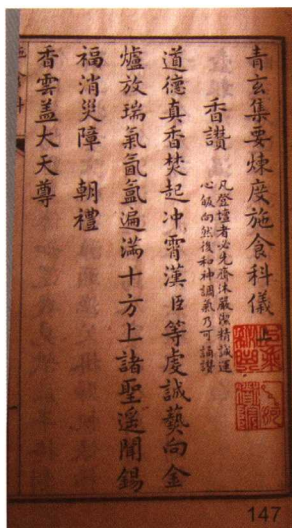 青玄集要煉度施食科儀上
香讚 凡登壇者必先齋沐嚴潔精誠運
心皈向然後和神調氣乃可誦讚
道德真香焚起冲霄漢臣等虔誠爇向金
爐放瑞氣氤氳遍滿十方上諸聖遥聞錫
福消災障 朝禮
香雲盖大天尊
施食科
147